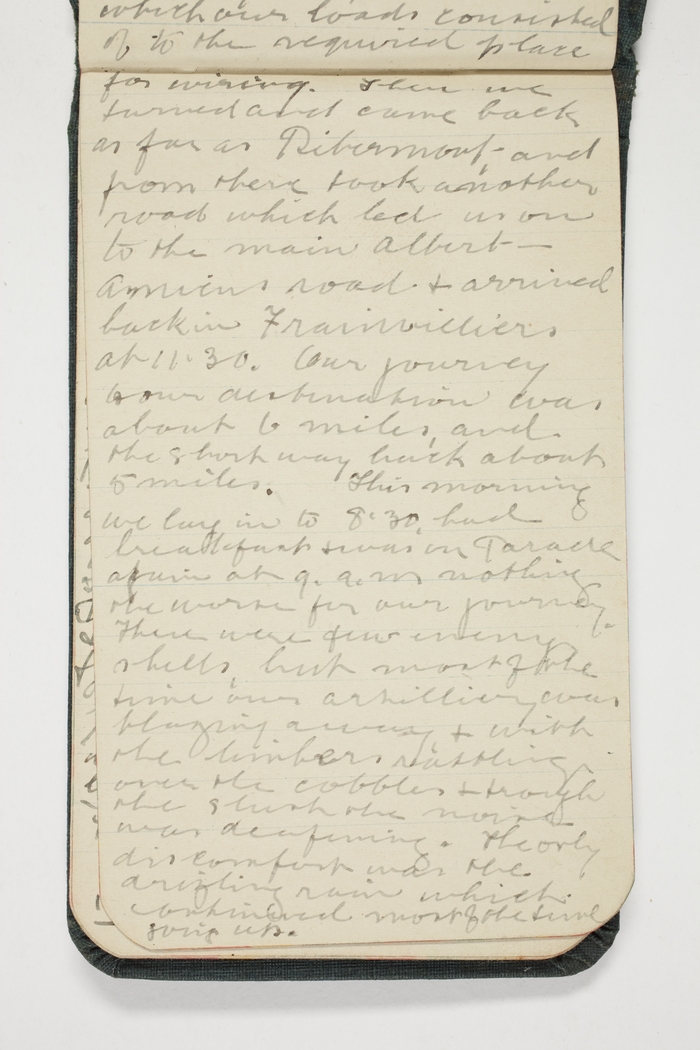 which our loads consisted
of to the required place
for wiring. Then we
turned and came back
as far as Ribermont, and
from there took another
road which led us on
to the main Albert—
Amiens road & arrived
back in Frainvilliers
at 11.30. Our journey
to our destination was
about 6 miles, and
the short way back about
5 miles. This morning
we lay in to 8.30, had
breakfast & was on Parade
again at 9. a.m nothing
the worse for our journey.
There were few enemy
shells, but most of the
time our artilliery was
blazing away & with
the limbers rattling
over the cobbles & trough
the slush the noise
was deafening. The only
discomfort was the
drizling rain which
continued most of the time
going up.